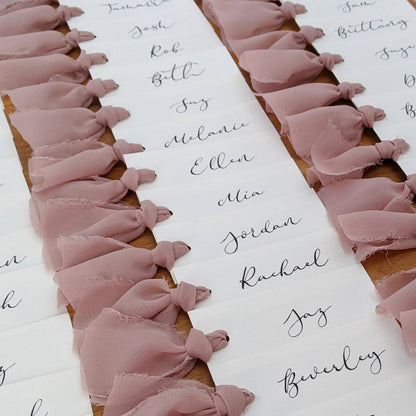 Tamara
Josh
Rob
Beth
Suz
Melanie
Ellen
Mia
Jordan
Rachael
Jaz
Beverley
Sam
Brittany